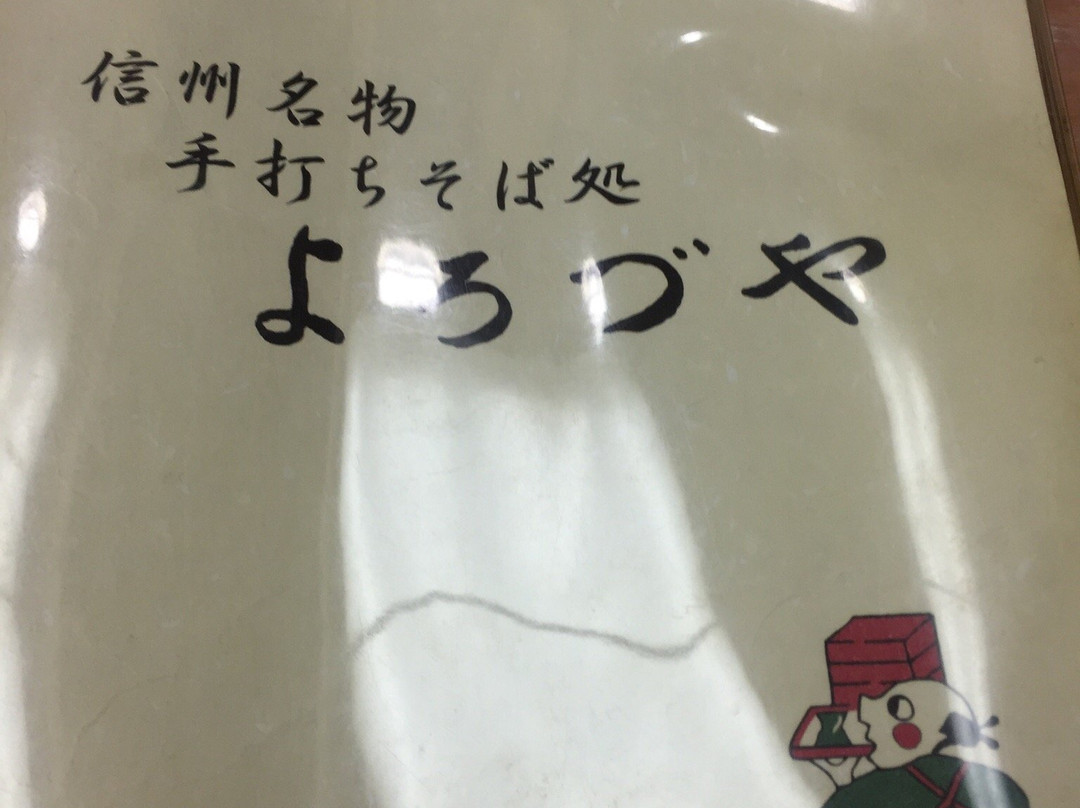 信州名物
手打ちそば処
よろづや